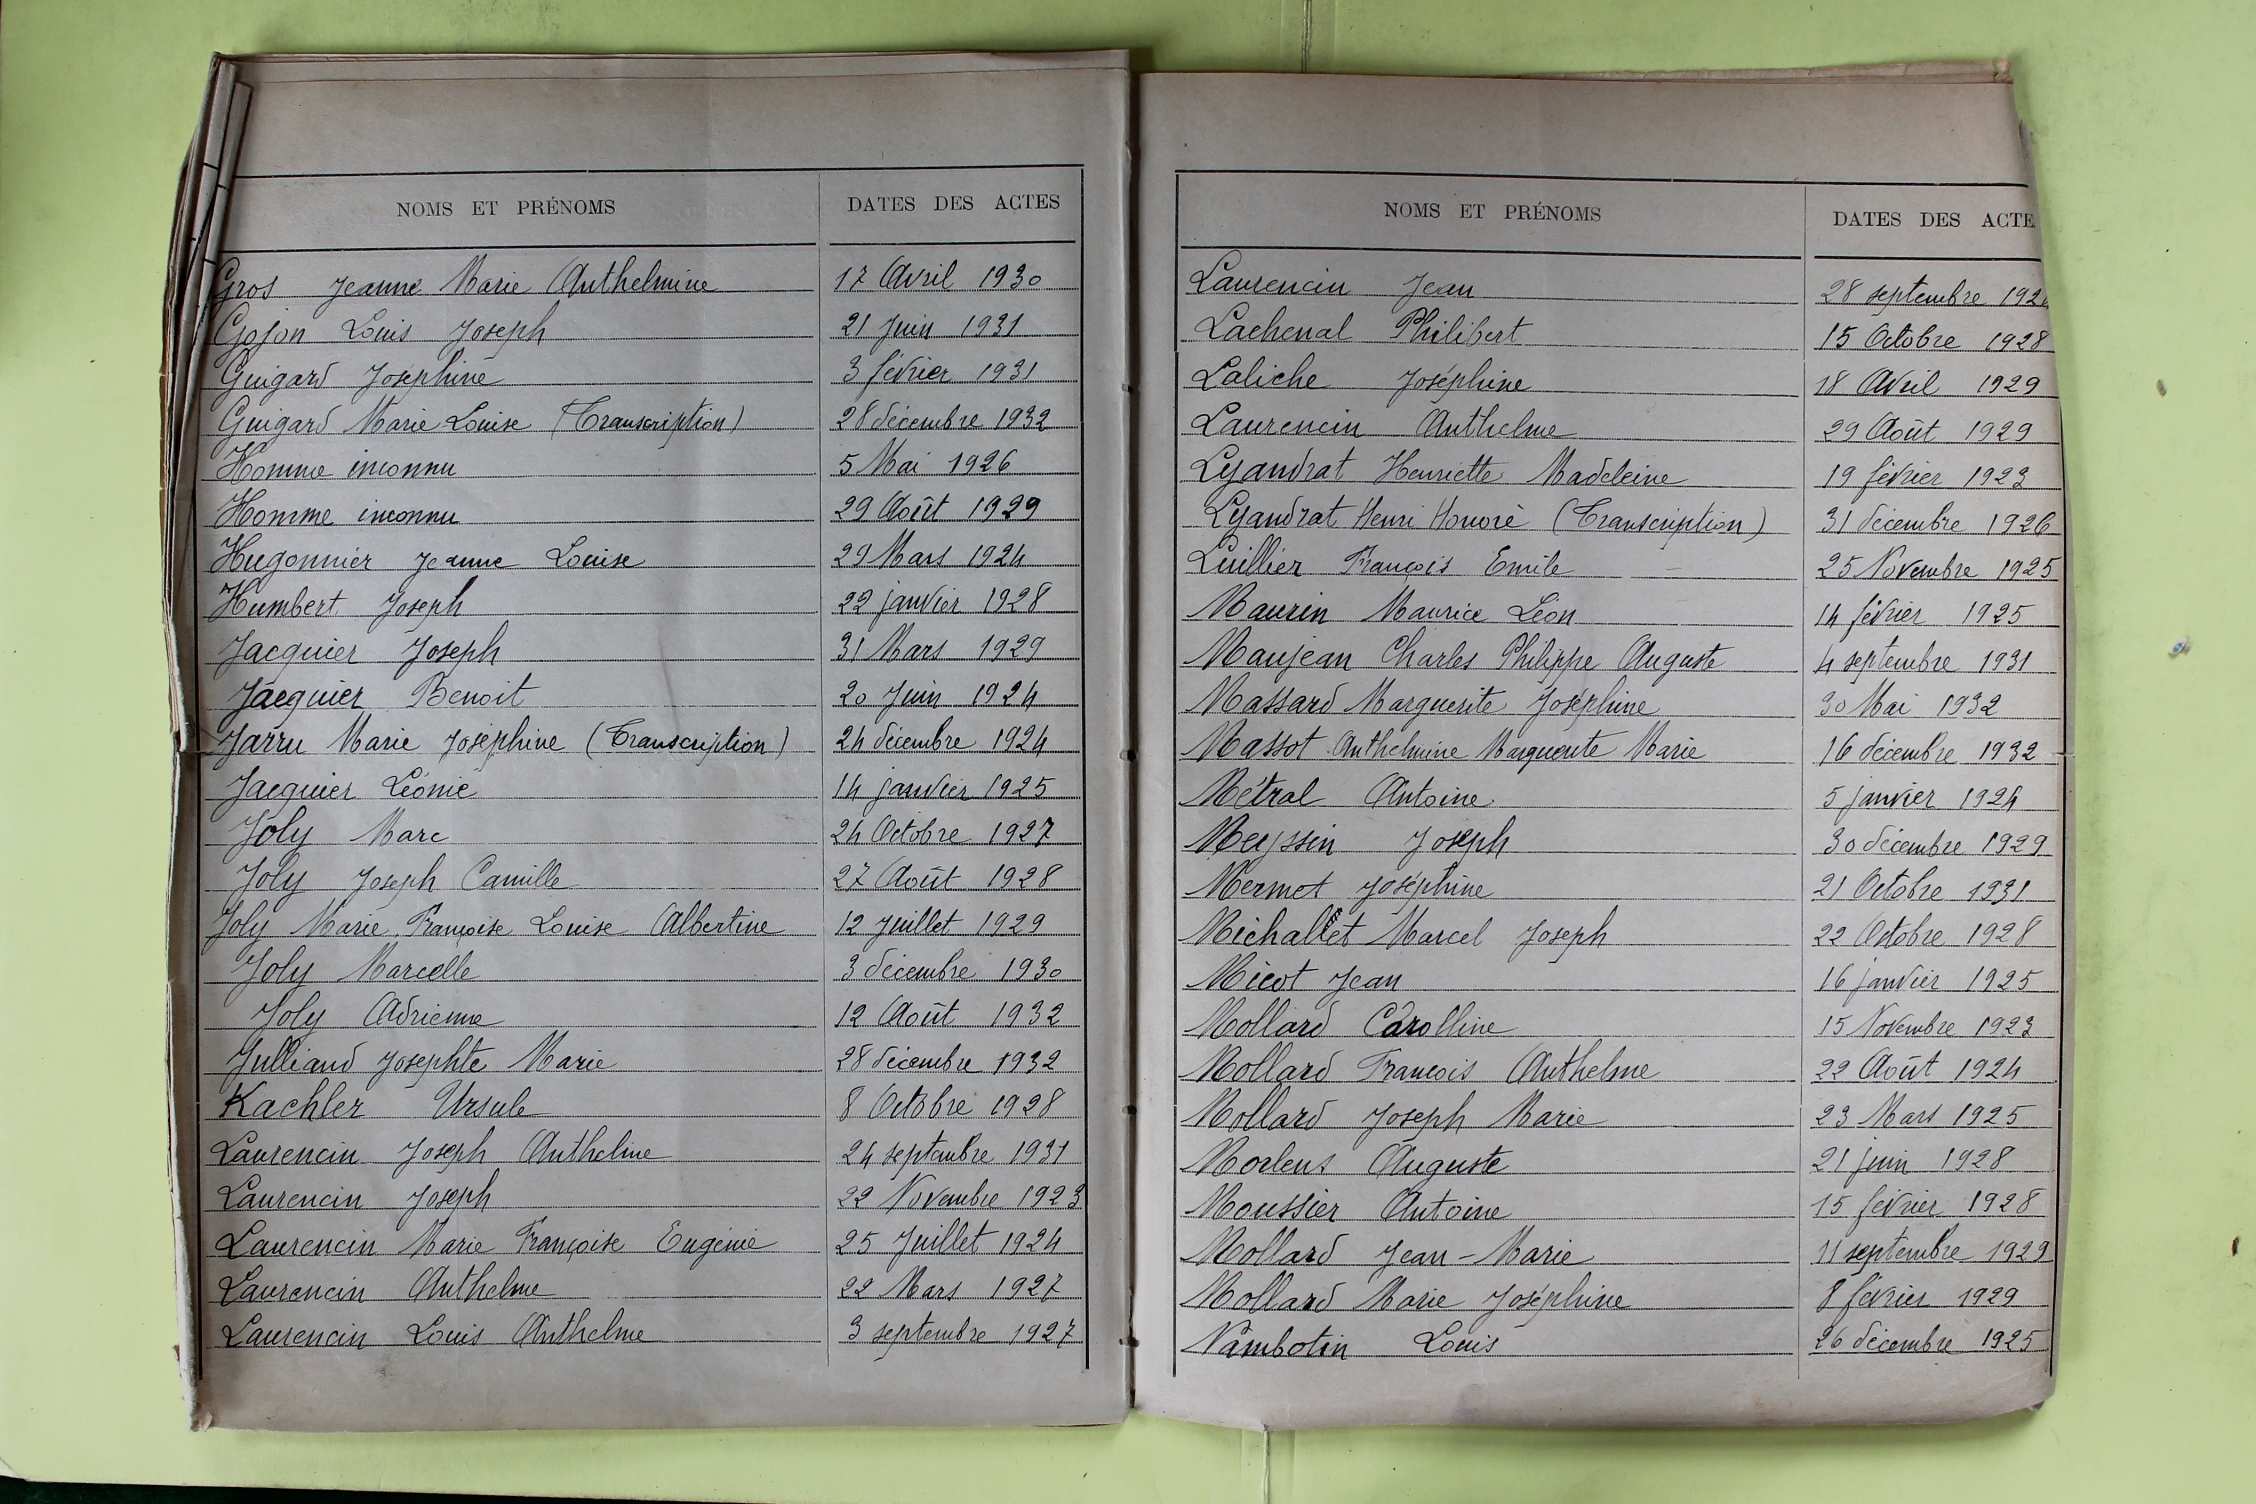 NOMS ET PRÉNOMS DATES DES ACTES
Gros Jeanne Marie Anthelmine 17 Avril 1930
Gojon Louis Joseph 21 Juin 1931
Guigard Joséphine 3 février 1931
Guigard Marie Louise (Transcription) 28 décembre 1932
Homme inconnu 5 Mai 1926
Homme inconnu 29 Août 1929
Hugonnier Jeanne Louise 29 Mars 1924
Humbert Joseph 22 janvier 1928
Jacquier Joseph 31 Mars 1929
Jacquier Benoit 20 Juin 1924
Jarru Marie Joséphine (Transcription) 24 décembre 1924
Jacquier Léonie 14 janvier 1925
Joly Marc 24 Octobre 1927
Joly Joseph Camille 27 Août 1928
Joly Marie Françoise Louise Albertine 12 Juillet 1929
Joly Marcelle 3 décembre 1930
Joly Adrienne 12 Août 1932
Julliand Josephte Marie 28 décembre 1932
Kachler Ursule 8 Octobre 1928
Laurencin Joseph Anthelme 24 septembre 1931
Laurencin Joseph 22 Novembre 1923
Laurencin Marie Françoise Eugénie 25 Juillet 1924
Laurencin Anthelme 22 Mars 1927
Laurencin Louis Anthelme 3 septembre 1927
NOMS ET PRÉNOMS DATES DES ACTE
Laurencin Jean 28 septembre
Lachenal Philibert 15 Octobre 1928
Laliche Joséphine 18 Avril 1929
Laurencin Anthelme 29 Août 1929
Lyandrat Henriette Madeleine 19 février 1923
Lyandrat Henri Honoré (Transcription) 31 décembre 1926
Luillier François Emile 25 Novembre 1925
Maurin Maurice Léon 14 février 1925
Maujean Charles Philippe Auguste 4 septembre 1931
Massard Marguerite Joséphine 30 Mai 1932
Massot Anthelmine Marguerite Marie 16 décembre 1932
Métral Antoine 5 janvier 1924
Meyssin Joseph 30 décembre 1929
Mermet Joséphine 21 Octobre 1931
Michallet Marcel Joseph 22 Octobre 1928
Micot Jean 16 janvier 1925
Mollard Carolline 15 Novembre 1923
Mollard François Anthelme 22 Août 1924
Mollard Joseph Marie 23 Mars 1925
Morlens Auguste 21 juin 1928
Moussier Antoine 15 février 1928
Mollard Jean-Marie 11 septembre 1929
Mollard Marie Joséphine 8 février 1929
Nambotin Louis 26 décembre 1925